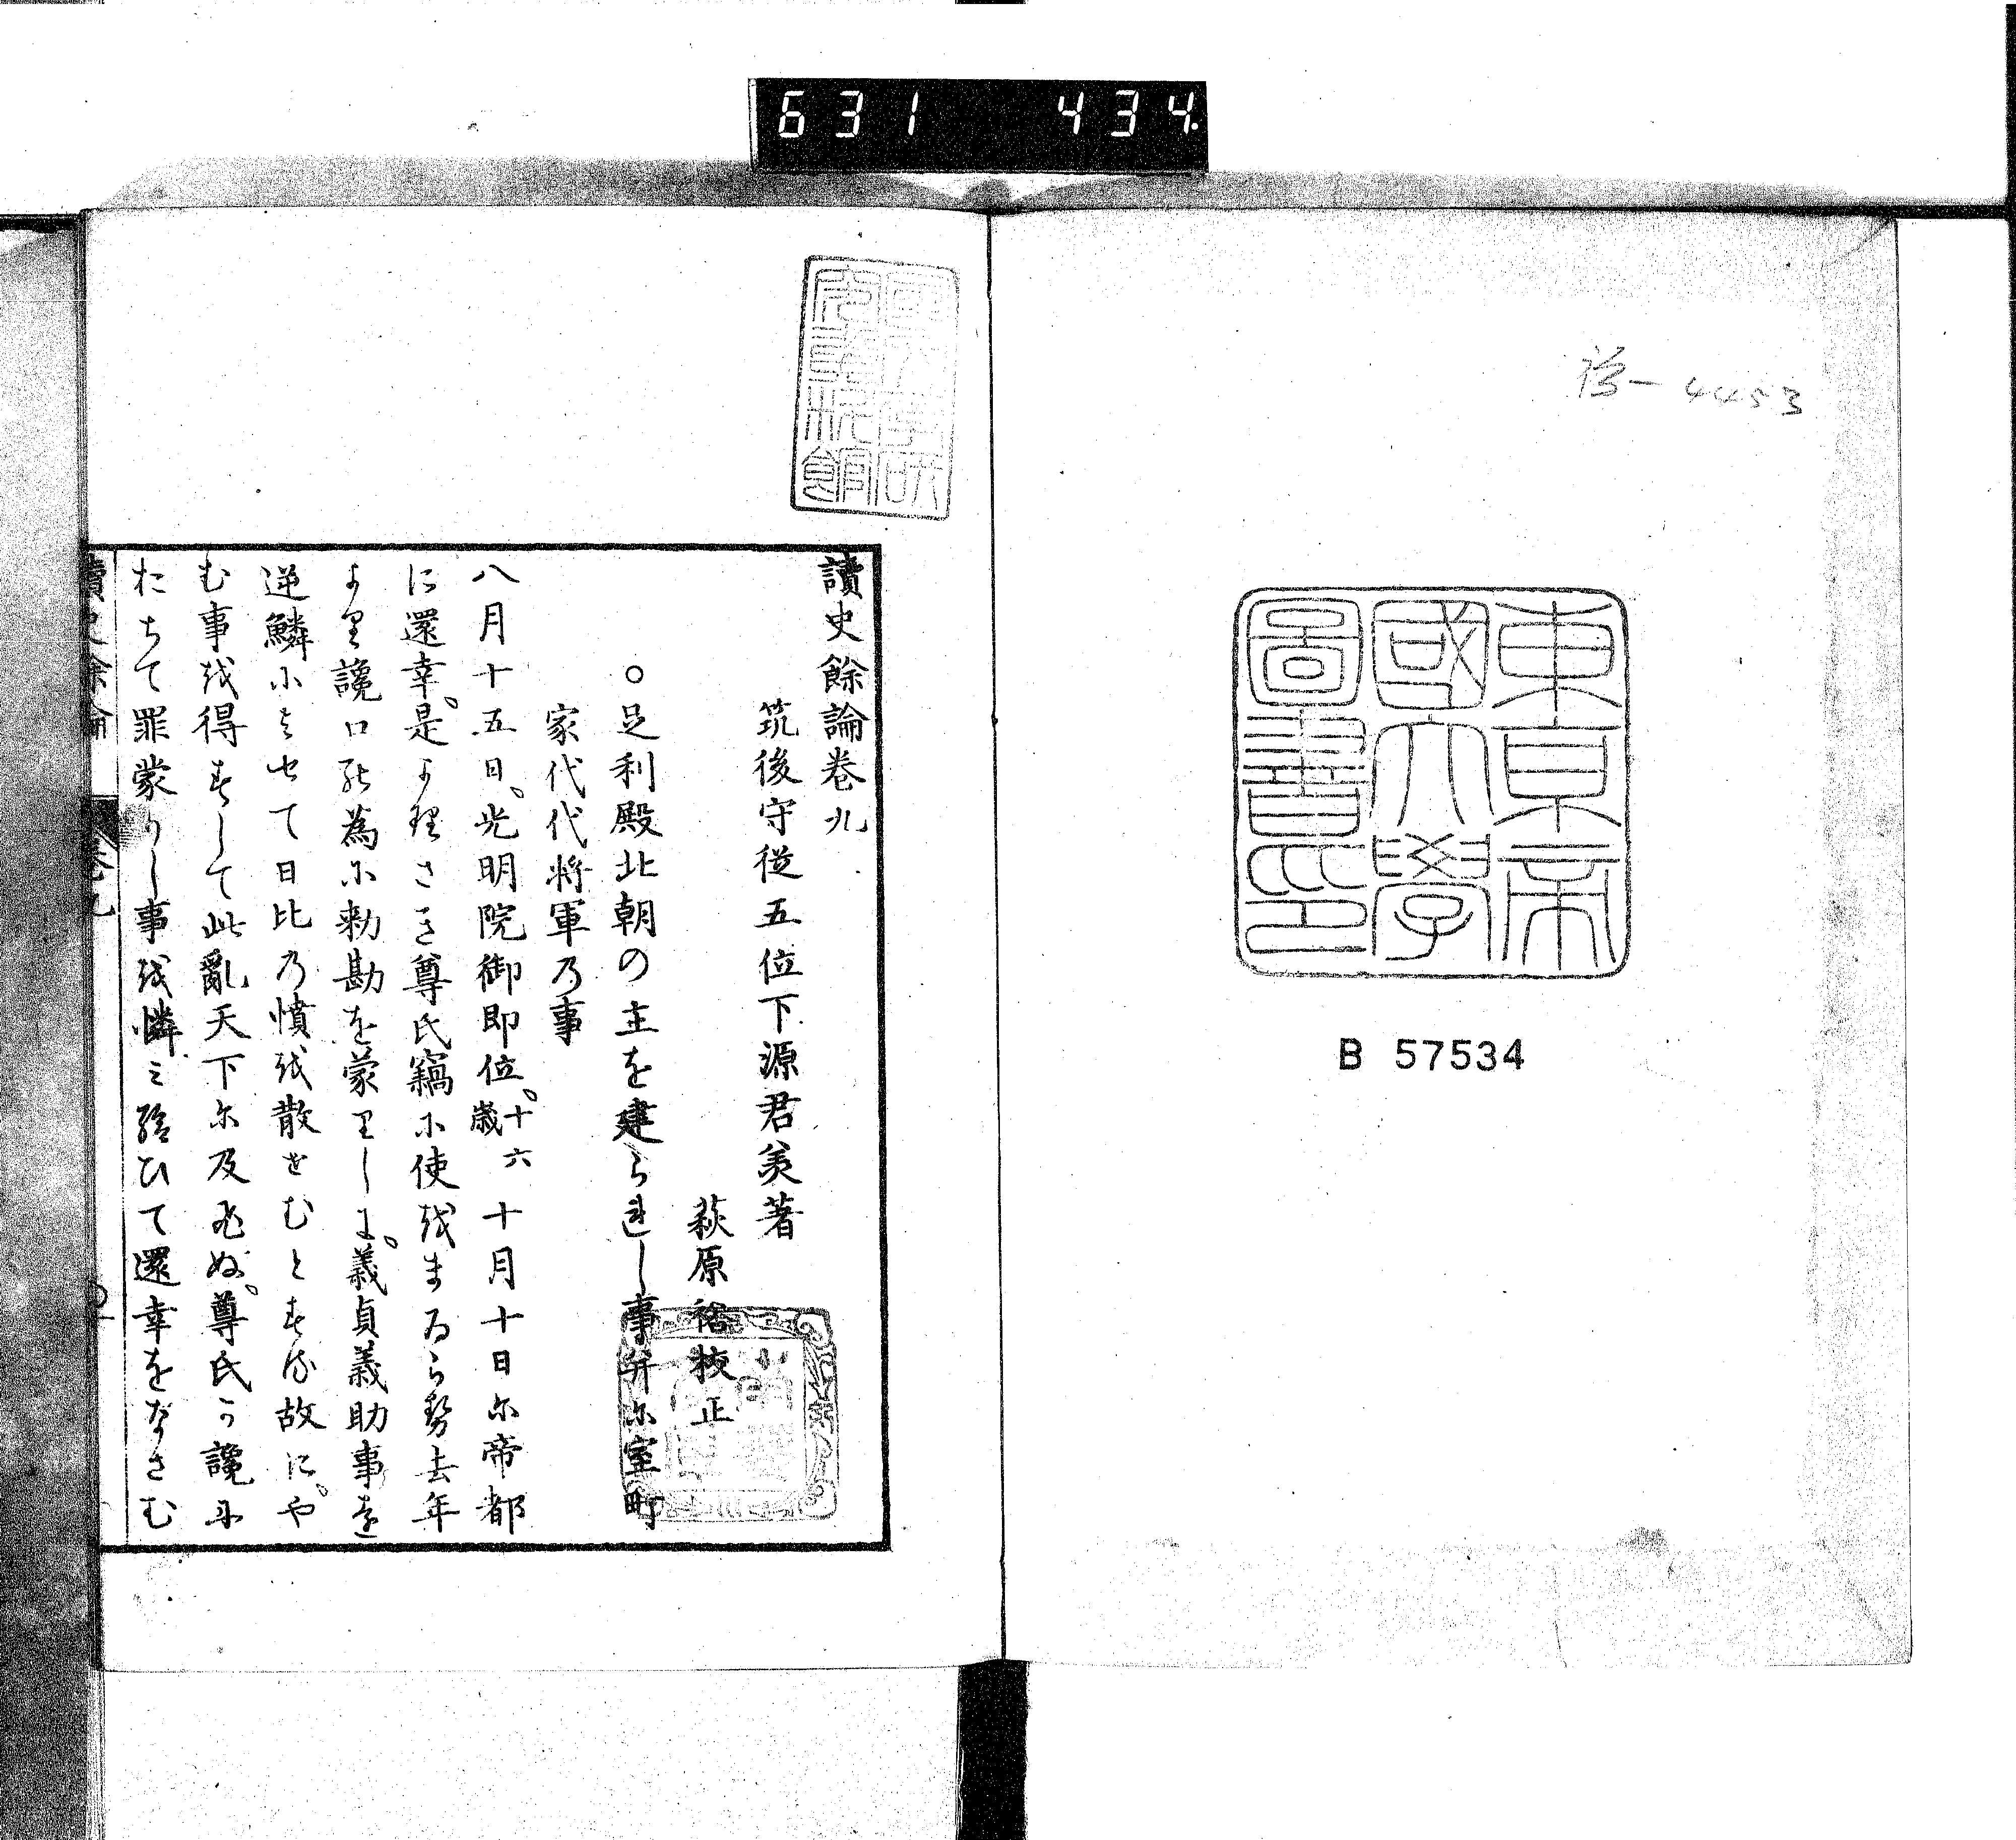 631 434.
徳一4453
東京帝
國大學
圖書印
B 57534
讀史餘論卷九
筑後守從五位下源君美著
萩原裕校正
○足利殿北朝の主を建られし事并に室町
家代代將軍乃事
八月十五日。光明院御即位。十六歳十月十日尓帝都
に還幸。是より理さき尊氏竊尓使越まゐら勢去年
より讒口能為尓勅勘を蒙里しよ。義貞義助事を
逆鱗尓よせて日比乃憤越散せむとする故に。や
む事越得春して此亂天下尓及ひぬ。尊氏可讒尓
おちて罪蒙りし事越憐ミ給ひて還幸をなさむ
讀史餘論
卷九